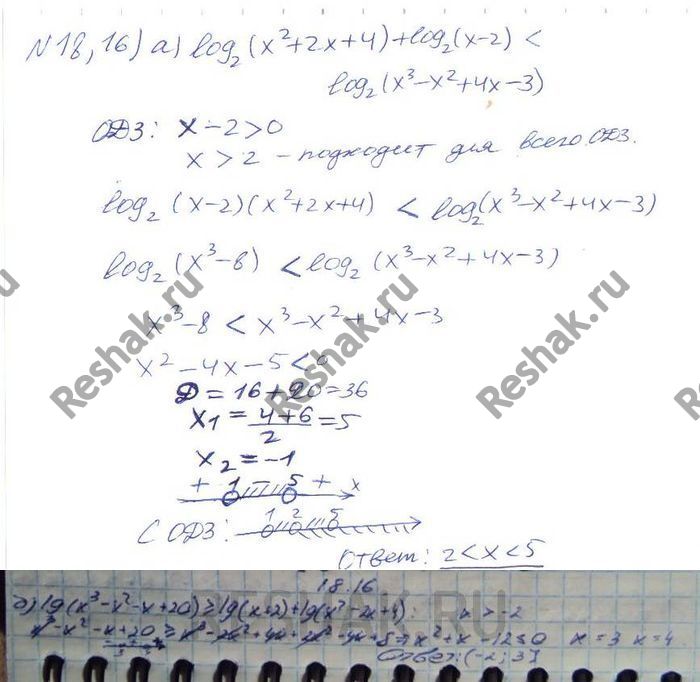 N18,16) а) log₂(x²+2x+4)+log₂(x-2) <
log₂(x³-x²+4x-3)
ОДЗ: x-2>0
x>2 - подходит для всего ОДЗ.
log₂ (x-2)(x²+2x+4) < log₂(x³-x²+4x-3)
log₂(x³-8) < log₂(x³-x²+4x-3)
x³-8 < x³-x²+4x-3
x²-4x-5<0
Д = 16+20=36
x₁ = 4+6/2 = 5
x₂ = -1
+ 1 - 5 + x
С ОДЗ: 1 2 5
Ответ: 2<x<5
18.16
lg(x³-x²-x+20) ≥ lg(x+2)+lg(x²-2x+4): x > -2
x³-x²-x+20 ≥ x³-2x²+4x+2x²-4x+8 x²+x-12≤0 x=3 x=4
Ответ: (-2;3]
Reshak.ru
Reshak.ru
Reshak.ru
RESHAK.RU